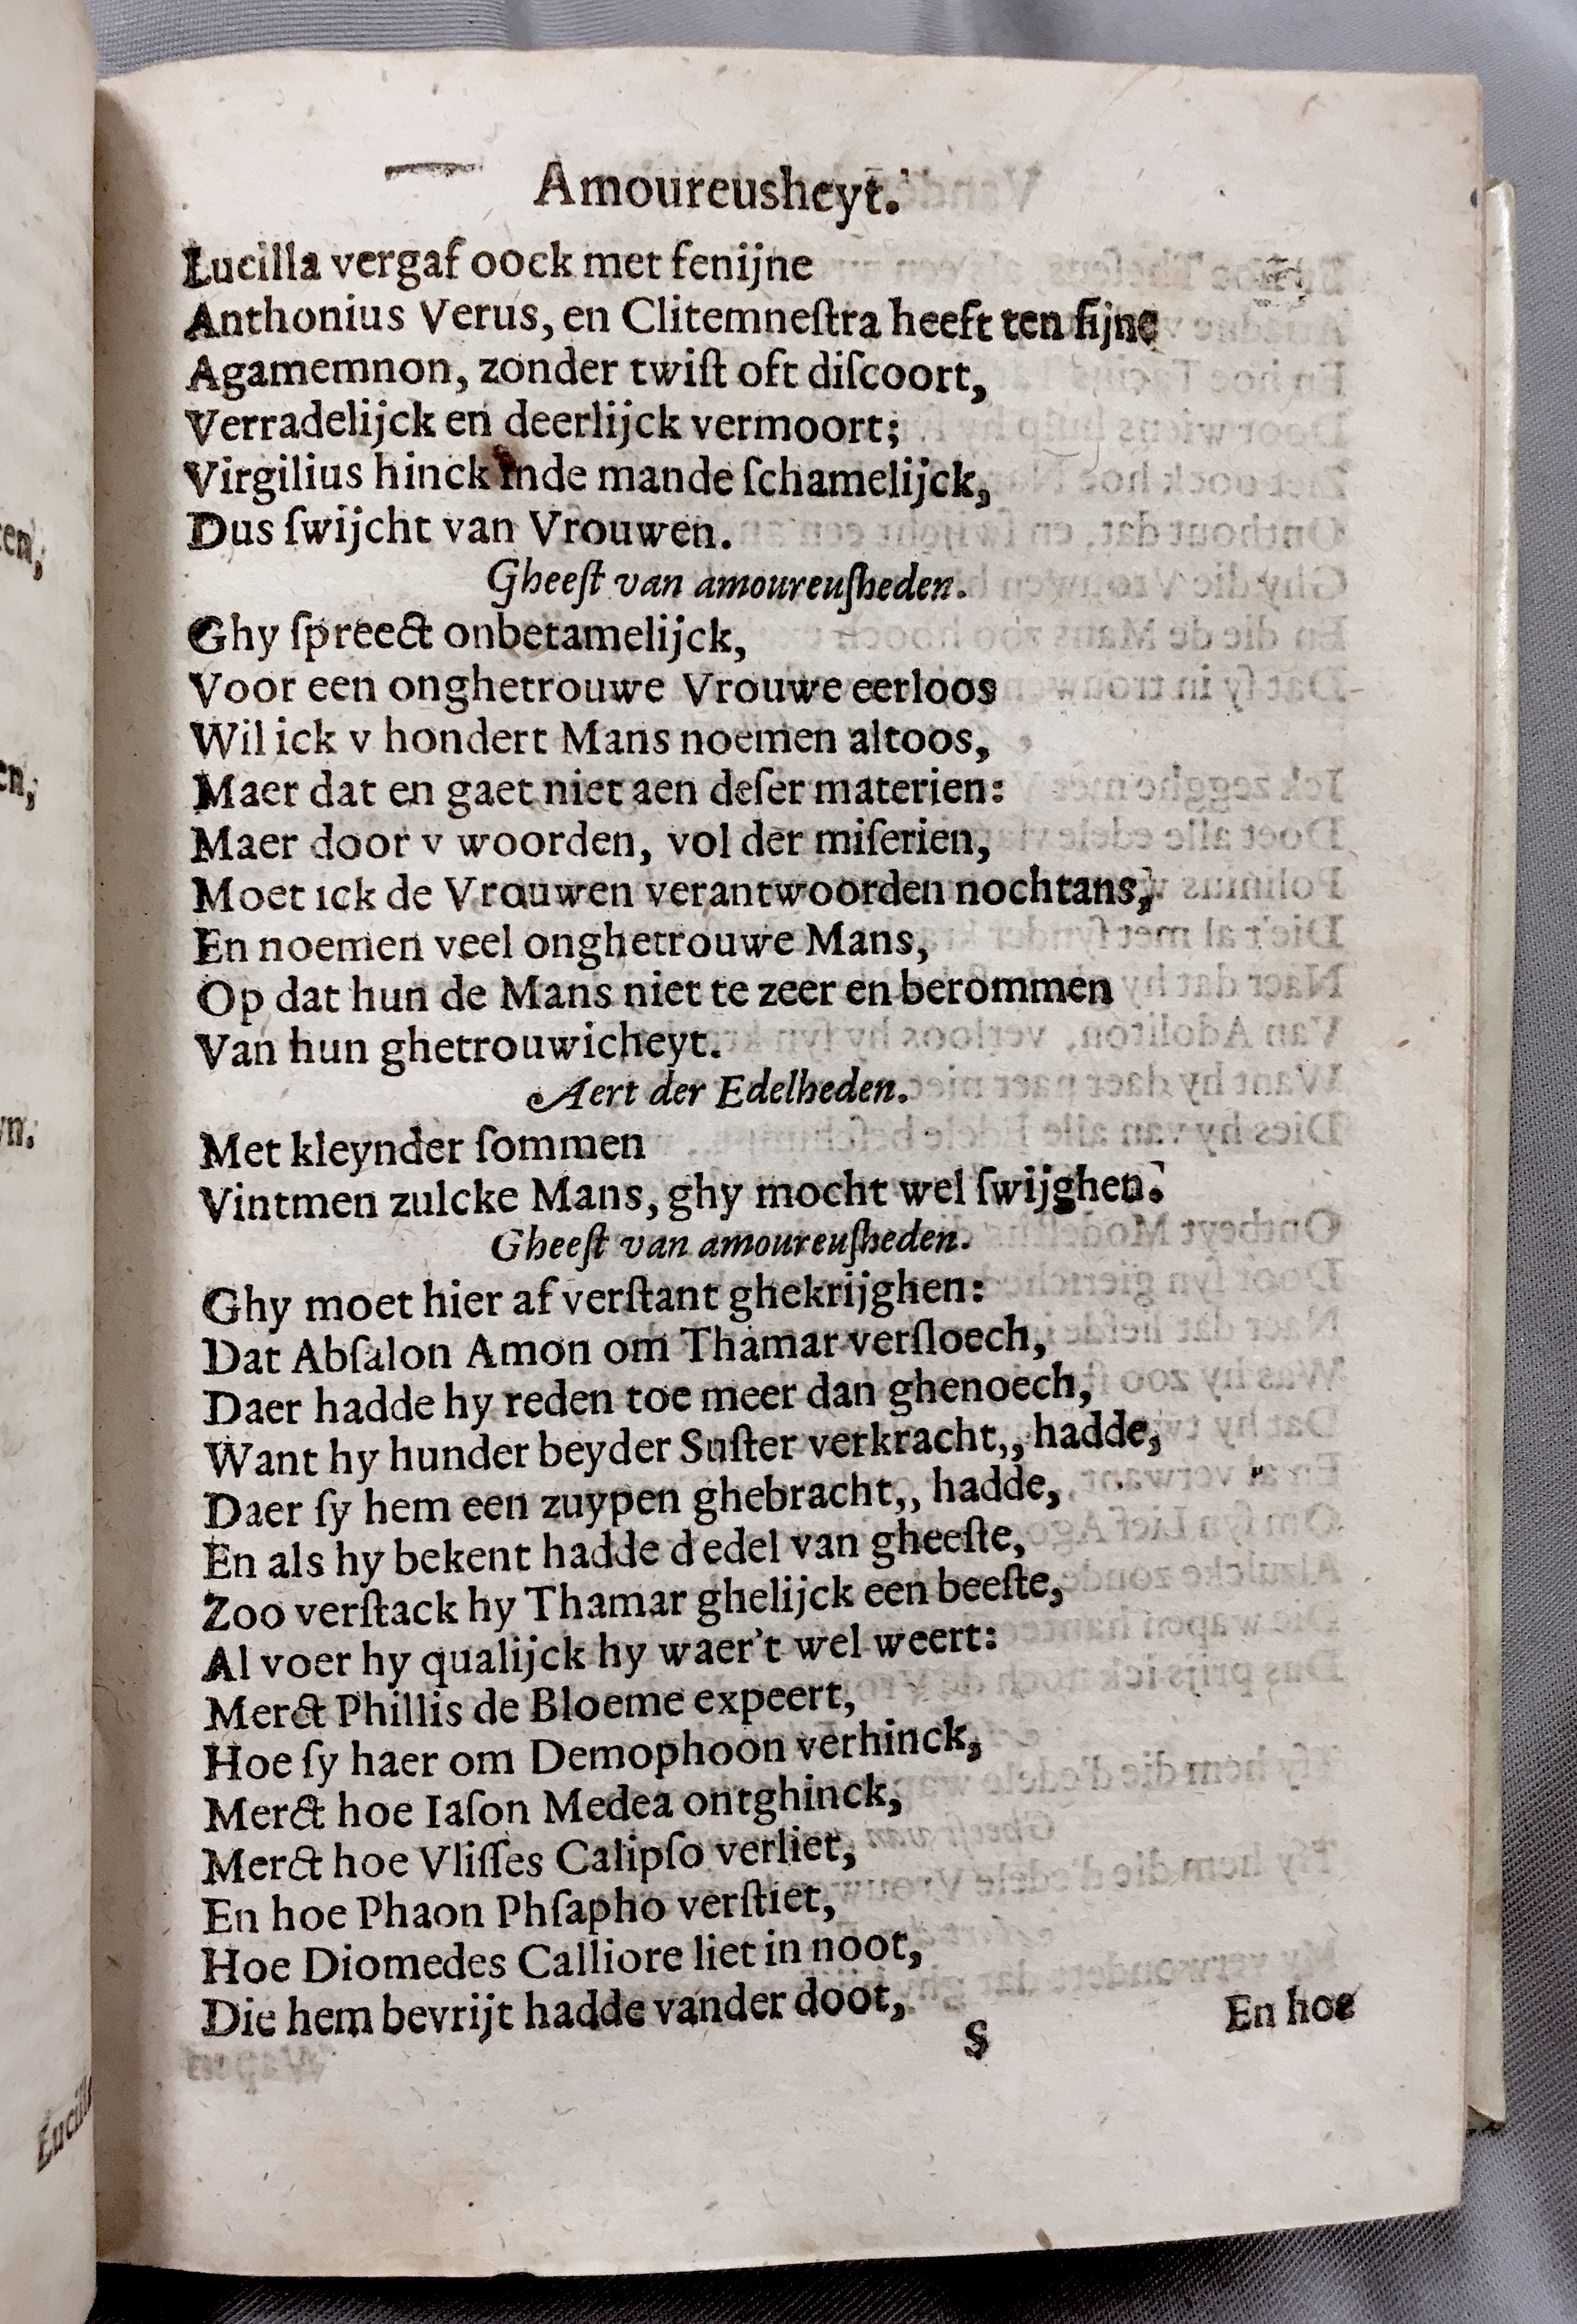 Amoureusheyt.
Lucilla vergaf oock met fenijne
Anthonius Verus, en Clitemneſtra heeft ten fijne
Agamemnon, zonder twiſt oft diſcoort,
Verradelijck en deerlijck vermoort;
Virgilius hinck inde mande ſchamelijck,
Dus ſwijcht van Vrouwen.
Gheeſt van amoureuſheden.
Ghy ſpreect onbetamelijck,
Voor een onghetrouwe Vrouwe eerloos
Wil ick v hondert Mans noemen altoos,
Maer dat en gaet niet aen deſer materien:
Maer door v woorden, vol der miſerien,
Moet ick de Vrouwen verantwoorden nochtans,
En noemen veel onghetrouwe Mans,
Op dat hun de Mans niet te zeer en berommen
Van hun ghetrouwicheyt.
Aert der Edelheden.
Met kleynder ſommen
Vintmen zulcke Mans, ghy mocht wel ſwijghen.
Gheeſt van amoureuſheden.
Ghy moet hier af verſtant ghekrijghen:
Dat Abſalon Amon om Thamar verſloech,
Daer hadde hy reden toe meer dan ghenoech,
Want hy hunder beyder Suſter verkracht,, hadde,
Daer ſy hem een zuypen ghebracht,, hadde,
En als hy bekent hadde d edel van gheeſte,
Zoo verſtack hy Thamar ghelijck een beeſte,
Al voer hy qualijck hy waer't wel weert:
Merct Phillis de Bloeme expeert,
Hoe ſy haer om Demophoon verhinck,
Merct hoe Iaſon Medea ontghinck,
Merct hoe Vliſſes Calipſo verliet,
En hoe Phaon Phſapho verſtiet,
Hoe Diomedes Calliore liet in noot,
Die hem bevrijt hadde vander doot,
S
En hoe